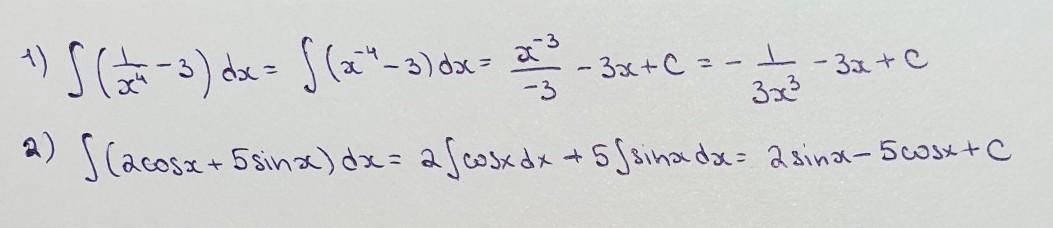 1) ∫(1/x⁴ - 3) dx = ∫(x⁻⁴ - 3) dx = x⁻³/-3 - 3x + C = - 1/3x³ - 3x + C
2) ∫(2cosx + 5sinx) dx = 2∫cosx dx + 5∫sinx dx = 2sinx - 5cosx + C